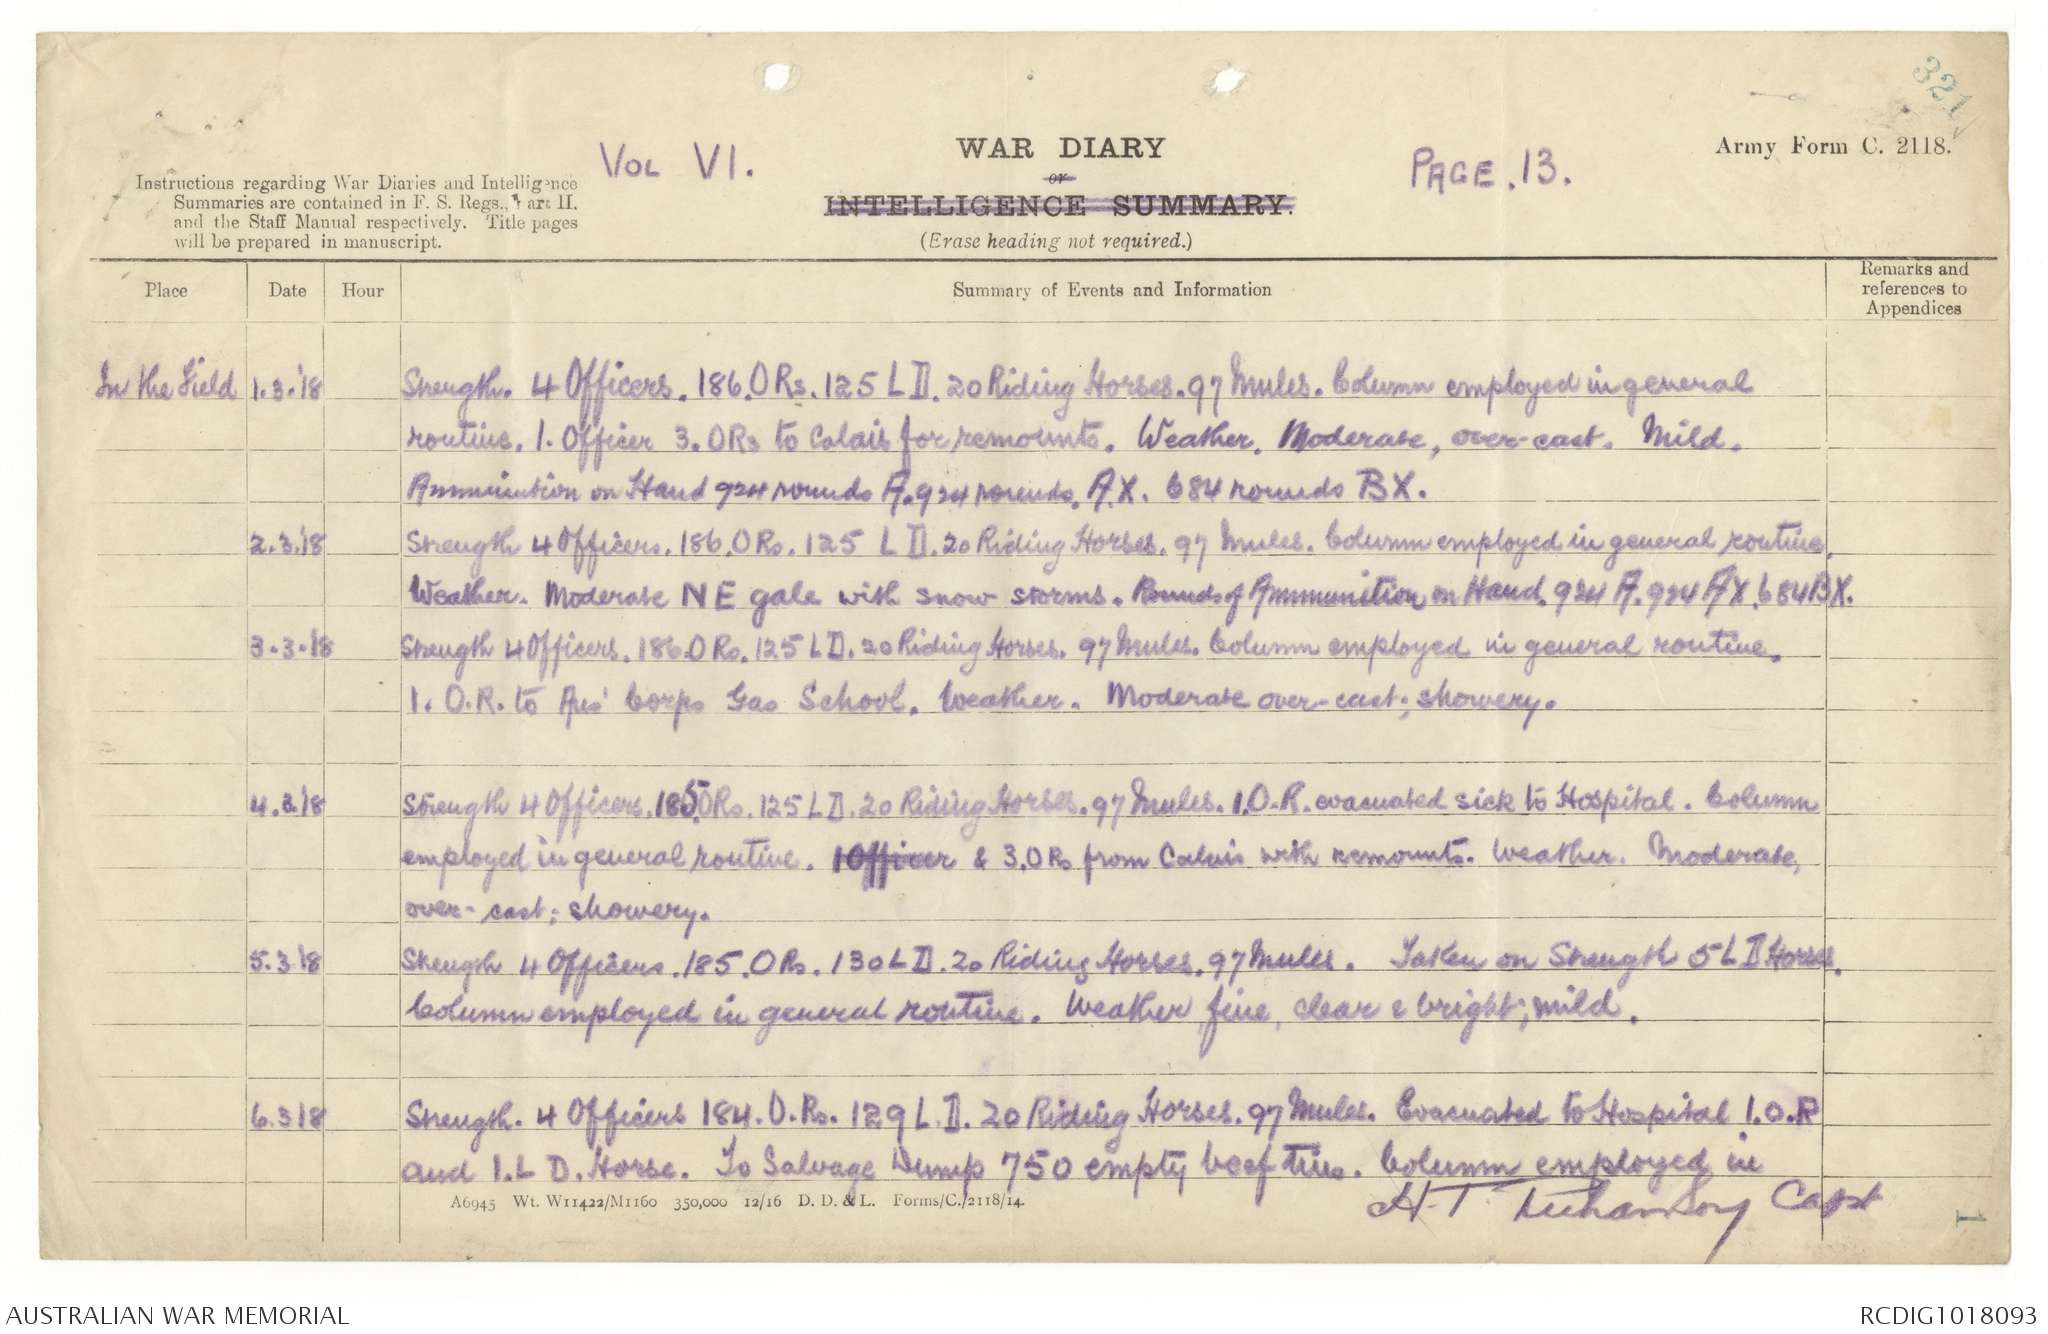 321
VOL VI.
WAR DIARY
or
INTELLIGENCE SUMMARY.
(Erase heading not required.)
PAGE. 13.
Army Form C. 2118.
Instructions regarding War Diaries and Intelligence
Summaries are contained in F. S. Regs., Part II.
and the Staff Manual respectively. Title pages
will be prepared in manuscript.
Place Date Hour Summary of Events and Information Remarks and references to Appendices
In the Field 1.3.'18 Strength. 4 Officers. 186. O Rs. 125 L D. 20 Riding Horses. 97 Mules. Column employed in general
routine. 1. Officer 3. O Rs to Calais for remounts. Weather. Moderate, over-cast. Mild.
Ammunition on Hand 924 rounds A. 924 rounds. A.X. 684 rounds BX.
2.3.'18 Strength 4 Officers. 186. O Rs. 125 L D. 20 Riding Horses. 97 Mules. Column employed in general routine.
Weather. Moderate NE gale with snow storms. Rounds of Ammunition on Hand. 924 A. 924 AX. 684 BX.
3.3.'18 Strength 4 Officers. 186. O Rs. 125 L D. 20 Riding Horses. 97 Mules. Column employed in general routine.
1. O.R. to Aus' Corps Gas School. Weather. Moderate over-cast; showery.
4.3.'18 Strength 4 Officers. 185. O Rs. 125 L D. 20 Riding Horses. 97 Mules. 1. O.R. evacuated sick to Hospital. Column
employed in general routine. 1 Officer & 3. O Rs from Calais with remounts. Weather. Moderate,
over-cast; showery.
5.3.'18 Strength 4 Officers. 185. O Rs. 130 L D. 20 Riding Horses. 97 Mules. Taken on Strength 5 L D Horses.
Column employed in general routine. Weather fine, clear & bright; mild.
6.3.'18 Strength. 4 Officers 184. O. Rs. 129 L. D. 20 Riding Horses. 97 Mules. Evacuated to Hospital 1. O. R
and 1. L D. Horse. To Salvage Dump 750 empty beef tins. Column employed in
A6945 Wt. W11422/M1160 350,000 12/16 D. D. & L. Forms/C./2118/14.
H. T. Capt
1
AUSTRALIAN WAR MEMORIAL
RCDIG1018093